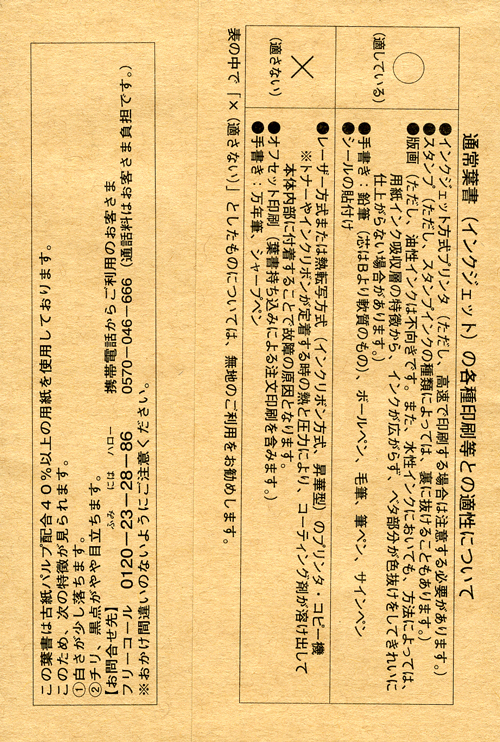 通常葉書（インクジェット）の各種印刷等との適性について
○
（適している）
●インクジェット方式プリンタ（ただし、高速で印刷する場合は注意する必要があります。）
●スタンプ（ただし、スタンプインクの種類によっては、裏に抜けることもあります。）
●版画（ただし、油性インクは不向きです。また、水性インクにおいても、方法によっては、
用紙インク吸収層の特徴から、インクが広がらず、ベタ部分が色抜けをしてきれいに
仕上がらない場合があります。）
●手書き：鉛筆（芯はＢより軟質のもの）、ボールペン、毛筆、筆ペン、サインペン
●シールの貼付け
×
（適さない）
●レーザー方式または熱転写方式（インクリボン方式、昇華型）のプリンタ・コピー機
※トナーやインクリボンが定着する時の熱と圧力により、コーティング剤が溶け出して
本体内部に付着することで故障の原因となります。
●オフセット印刷（葉書持ち込みによる注文印刷を含みます。）
●手書き：万年筆、シャープペン
表の中で「×（適さない）」としたものについては、無地のご利用をお勧めします。
この葉書は古紙パルプ配合４０％以上の用紙を使用しております。
このため、次の特徴が見られます。
①白さが少し落ちます。
②チリ、黒点がやや目立ちます。
【お問合せ先】 ふみ には ハロー 携帯電話からご利用のお客さま
フリーコール ０１２０－２３－２８－８６ ０５７０－０４６－６６６（通話料はお客さま負担です。）
※おかけ間違いのないようにご注意ください。